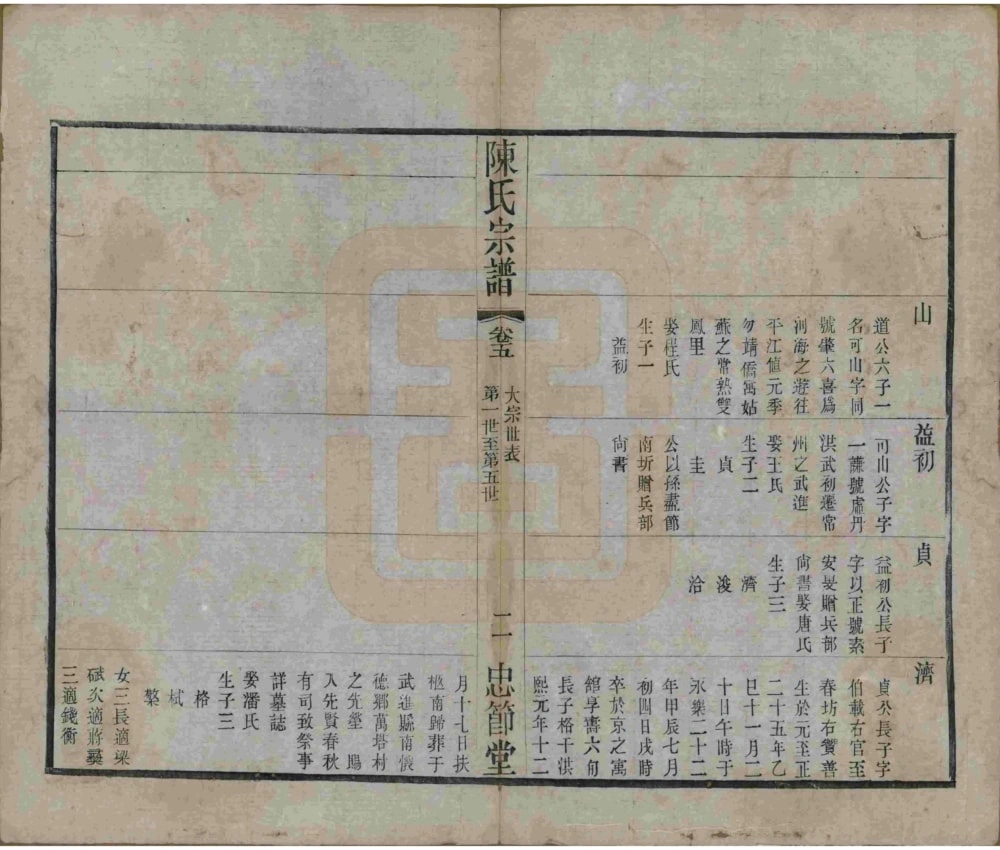 山
道公六子一
名可山字同
號肇六喜爲
河海之遊往
平江値元季
勿靖僑寓姑
蘇之常熟雙
鳳里
娶程氏
生子一
益初
益初
可山公子字
一謙號虛丹
洪武初遷常
州之武進
娶王氏
生子二
貞
圭
公以孫盡節
南圻贈兵部
尙書
貞
益初公長子
字以正號素
安旻贈兵部
尙書娶唐氏
生子三
濟
浚
洽
濟
貞公長子字
伯載右官至
春坊右贊善
生於元至正
二十五年乙
巳十一月二
十日午時于
永樂二十二
年甲辰七月
初四日戌時
卒於京之寓
館享壽六旬
長子格干淇
熙元年十二
陳氏宗譜
卷五
大宗世表
第一世至第五世
二
忠節堂
月十七日扶
柩南歸葬于
武進縣南儀
德鄉萬塔村
之先塋 賜
入先賢春秋
有司致祭事
詳墓誌
娶潘氏
生子三
格
栻
槩
女三長適梁
碔次適蔣
三適錢衡